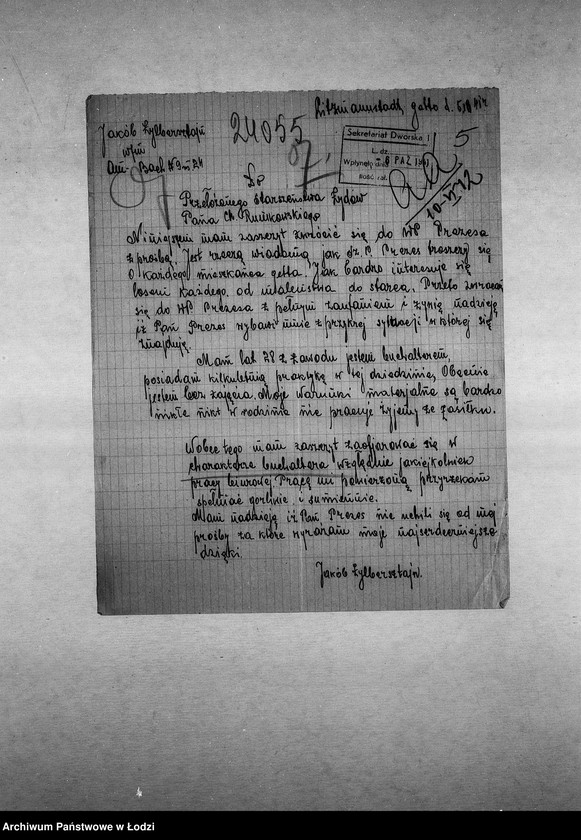 Litzmannstadt, getto d. 5/X 41r
Jakób Zylbersztajn
w/m
Am Bach N 9 m 24
24055
Sekretariat Dworska 1
L. dz.
Wpłynęło dnia - 6 PAŹ 1941
Ilość zał.
5
10-VI-42
Do
Przełożonego Starszeństwa Żydów
Pana Ch. Rumkowskiego
Niniejszem mam zaszczyt zwrócić się do WP Prezesa
z prośbą. Jest rzeczą wiadomą jak Sz. P. Prezes troszczy się
o każdego mieszkańca getta. Jak bardzo interesuje się
losem każdego, od maleństwa do starca. Przeto zwracam
się do WP Prezesa z pełnym zaufaniem i żywię nadzieję
iż Pan Prezes wybawi mnie z przykrej sytuacji w której się
znajduję.
Mam lat 28 z zawodu jestem buchalterem,
posiadam kilkuletnią praktykę w tej dziedzinie, Obecnie
jestem bez zajęcia. Moje warunki materjalne są bardzo
nikłe nikt w rodzinie nie pracuje żyjemy ze zasiłku.
Wobec tego mam zaszczyt zaofiarować się w
charakterze buchaltera względnie jakiejkolwiek
pracy biurowej. Pracę mi powierzoną przyrzekam
spełniać gorliwie i sumiennie.
Mam nadzieję iż Pan Prezes nie uchyli się od mej
prośby za które wyrażam moje najserdeczniejsze
dzięki.
Jakób Zylbersztajn.
Archiwum Państwowe w Łodzi